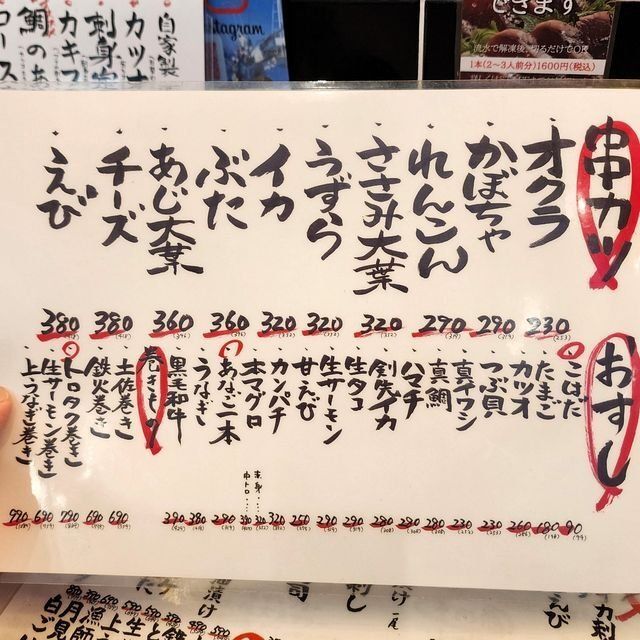 できます
流水で解凍後、切るだけでOK
1本(2〜3人前分)1600円(税込)
stagram
自家製
カツオ
刺身
カキフ
鯛のあ
串カツ
オクラ 230 (253)
かぼちゃ 290 (319)
れんこん 290 (319)
ささみ大葉 320 (352)
うずら 320 (352)
イカ 320 (352)
ぶた 360 (396)
あじ大葉 360 (396)
チーズ 380 (418)
えび 380 (418)
おすし
こはだ 90 (99)
たまご 180 (198)
カツオ 260 (286)
つぶ貝 230 (253)
真イワシ 230 (253)
真鯛 280 (308)
ハマチ 280 (308)
剣先イカ 280 (308)
生タコ 290 (319)
生サーモン 290 (319)
甘えび 250
カンパチ 320 (352)
本マグロ 赤身 320 (352)
中トロ
あなご一本 290 (319)
うなぎ 380 (418)
黒毛和牛 390 (429)
巻きもの
土佐巻き 690 (759)
鉄火巻き 690 (759)
トロタク巻き 790 (869)
生サーモン巻き 690 (759)
上うなぎ巻き 990 (1089)